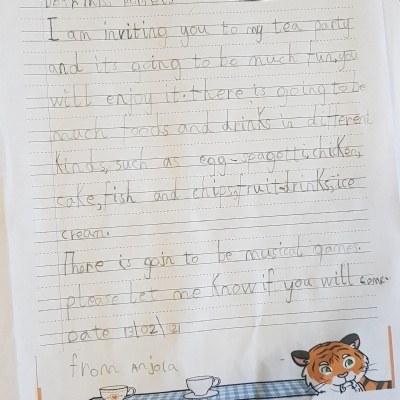 I am inviting you to my tea party
and its going to be much fun,you
will enjoy it.there is going to be
much foods and drinks in different
kinds,such as egg-spagotti,chicken,
cake,fish and chips,fruit-drinks,ice
cream.
There is goin to be musical games.
please let me know if you will come.
Date 13/02/21
from Anjola